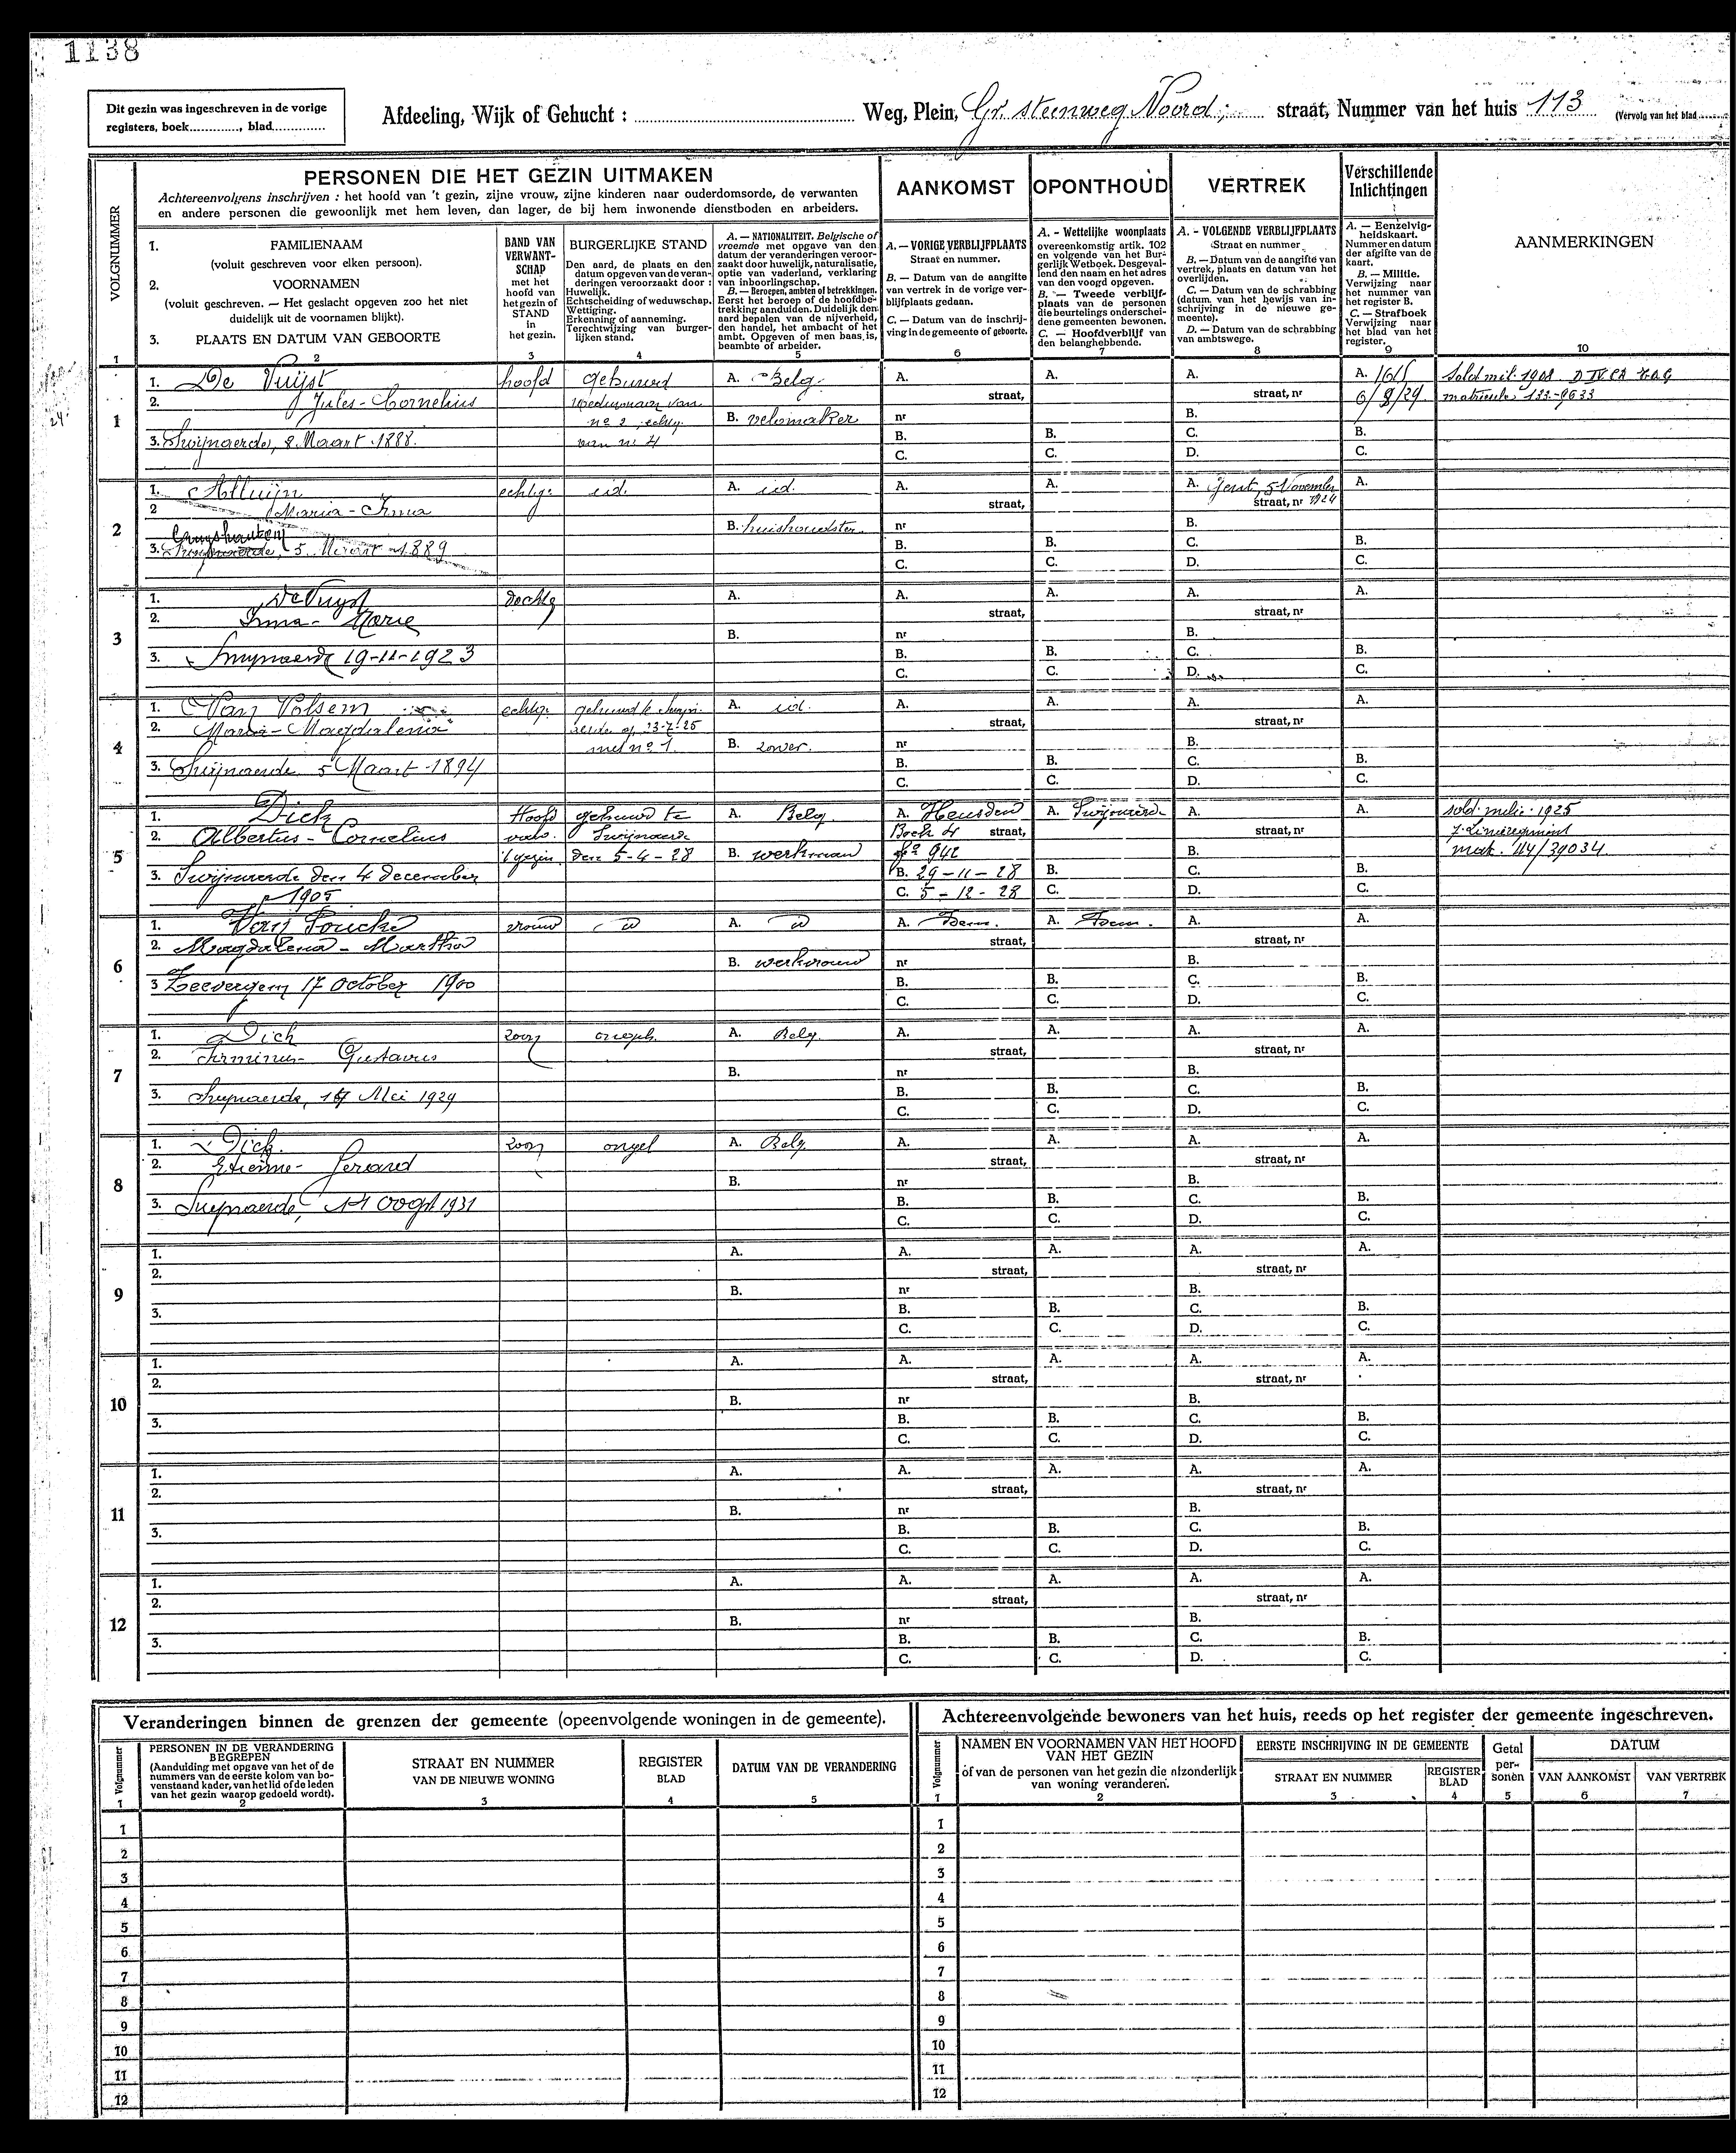 1138
Dit gezin was ingeschreven in de vorige
registers, boek............, blad..............
Afdeeling, Wijk of Gehucht : .............. Weg, Plein, Gr. steenweg Noord ; straat, Nummer van het huis 113 (Vervolg van het blad
PERSONEN DIE HET GEZIN UITMAKEN
Achtereenvolgens inschrijven : het hoofd van 't gezin, zijne vrouw, zijne kinderen naar ouderdomsorde, de verwanten
en andere personen die gewoonlijk met hem leven, dan lager, de bij hem inwonende dienstboden en arbeiders.
AANKOMST
OPONTHOUD
VERTREK
Verschillende
Inlichtingen
AANMERKINGEN
VOLGNUMMER
1
1. FAMILIENAAM
(voluit geschreven voor elken persoon).
2. VOORNAMEN
(voluit geschreven. — Het geslacht opgeven zoo het niet
duidelijk uit de voornamen blijkt).
3. PLAATS EN DATUM VAN GEBOORTE
2
BAND VAN
VERWANT-
SCHAP
met het
hoofd van
het gezin of
STAND
in
het gezin.
3
BURGERLIJKE STAND
Den aard, de plaats en den
datum opgeven van de veran-
deringen veroorzaakt door :
Huwelijk.
Echtscheiding of weduwschap.
Wettiging.
Erkenning of aanneming.
Terechtwijzing van burger-
lijken stand.
4
A. — NATIONALITEIT. Belgische of
vreemde met opgave van den
datum der veranderingen veroor-
zaakt door huwelijk, naturalisatie,
optie van vaderland, verklaring
van inboorlingschap.
B. — Beroepen, ambten of betrekkingen.
Eerst het beroep of de hoofdbe-
trekking aanduiden. Duidelijk den
aard bepalen van de nijverheid,
den handel, het ambacht of het
ambt. Opgeven of men baas is,
beambte of arbeider.
5
A. — VORIGE VERBLIJFPLAATS
Straat en nummer.
B. — Datum van de aangifte
van vertrek in de vorige ver-
blijfplaats gedaan.
C. — Datum van de inschrij-
ving in de gemeente of geboorte.
6
A. - Wettelijke woonplaats
overeenkomstig artik. 102
en volgende van het Bur-
gerlijk Wetboek. Desgeval-
lend den naam en het adres
van den voogd opgeven.
B. — Tweede verblijf-
plaats van de personen
die beurtelings onderschei-
dene gemeenten bewonen.
C. — Hoofdverblijf van
den belanghebbende.
7
A. - VOLGENDE VERBLIJFPLAATS
Straat en nummer
B. — Datum van de aangifte van
vertrek, plaats en datum van het
overlijden.
C. — Datum van de schrabbing
(datum van het bewijs van in-
schrijving in de nieuwe ge-
meente).
D. — Datum van de schrabbing
van ambtswege.
8
A. — Eenzelvig-
heidskaart.
Nummer en datum
der afgifte van de
kaart.
B. — Militie.
Verwijzing naar
het nummer van
het register B.
C. — Strafboek
Verwijzing naar
het blad van het
register.
9
10
1
1. De Vuijst hoofd gehuwd A. Belg. A. A. A. A. 1615 Sold mil. 1908
2. Jules-Cornelius weduwnaar van straat, straat, nr 6/8/29 matricule 133-9633
no 2, echtg. B. velomaker nr B.
3. Swijnaerde, 8 Maart 1888. van no 4 B. B. C. B.
C. C. D. C.
2
1. Alluijn echtge id. A. id. A. A. A. Gent, 5 November A.
2 Maria-Irma straat, straat, nr 1924
Cruyshoutem B. huishoudster nr B.
3. Swijnaerde, 5 Maart 1889 B. B. C. B.
C. C. D. C.
3
1. De Vuyst dochtg A. A. A. A. A.
2. Irma- Marie straat, straat, nr
B. nr B.
3. Swynaerde 19-11-1923 B. B. C. B.
C. C. D. C.
4
1. Van Volsem echtge gehuwd te Swijn- A. id. A. A. A. A.
2. Maria-Magdalena aerde op 23-7-25 straat, straat, nr
met no 1. B. zonder. nr B.
3. Swijnaerde 5 Maart 1894 B. B. C. B.
C. C. D. C.
5
1. Dick Hoofd gehuwd te A. Belg A. Heusden A. Swijnaerde A. A. sold. milic. 1925
2. Albertus-Cornelius Swijnaerde Boek 4 straat, straat, nr 7. Linieregiment
't gezin. den 5-4-28 B. werkman fo 942 B. mat. 114/39034
3. Swijnaerde den 4 december B. 29-11-28 B. C. B.
1905 C. 5-12-28 C. D. C.
6
1. Van Poucke vrouw id A. id A. Idem. A. Idem. A. A.
2. Magdalena-Martha straat, straat, nr
B. werkvrouw nr B.
3 Zeevergem 17 october 1900 B. B. C. B.
C. C. D. C.
7
1. Dick zoon ongeh. A. Belg. A. A. A. A.
2. Firminus- Gustavus straat, straat, nr
B. nr B.
3. Swynaerde, Mei 1929 B. B. C. B.
C. C. D. C.
8
1. Dick. zoon ongeh A. Belg. A. A. A. A.
2. Etienne- Gerard straat, straat, nr
B. nr B.
3. Swynaerde, Oogst 1931 B. B. C. B.
C. C. D. C.
9
1. A. A. A. A. A.
2. straat, straat, nr
B. nr B.
3. B. B. C. B.
C. C. D. C.
10
1. A. A. A. A. A.
2. straat, straat, nr
B. nr B.
3. B. B. C. B.
C. C. D. C.
11
1. A. A. A. A. A.
2. straat, straat, nr
B. nr B.
3. B. B. C. B.
C. C. D. C.
12
1. A. A. A. A. A.
2. straat, straat, nr
B. nr B.
3. B. B. C. B.
C. C. D. C.
Veranderingen binnen de grenzen der gemeente (opeenvolgende woningen in de gemeente).
Volgnummer
1
PERSONEN IN DE VERANDERING
BEGREPEN
(Aanduiding met opgave van het of de
nummers van de eerste kolom van bo-
venstaand kader, van het lid of de leden
van het gezin waarop gedoeld wordt).
2
STRAAT EN NUMMER
VAN DE NIEUWE WONING
3
REGISTER
BLAD
4
DATUM VAN DE VERANDERING
5
1
2
3
4
5
6
7
8
9
10
11
12
Achtereenvolgende bewoners van het huis, reeds op het register der gemeente ingeschreven.
Volgnummer
1
NAMEN EN VOORNAMEN VAN HET HOOFD
VAN HET GEZIN
of van de personen van het gezin die afzonderlijk
van woning veranderen.
2
EERSTE INSCHRIJVING IN DE GEMEENTE
STRAAT EN NUMMER
3
REGISTER
BLAD
4
Getal
per-
sonen
5
DATUM
VAN AANKOMST
6
VAN VERTREK
7
1
2
3
4
5
6
7
8
9
10
11
12